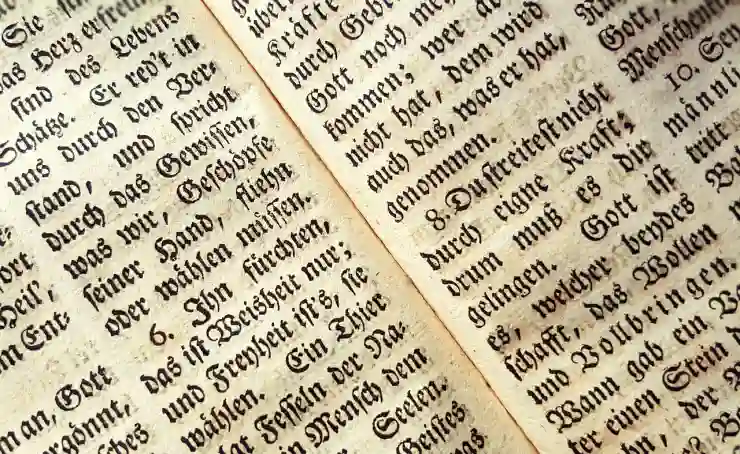 ort
Heil',
m Ent:
man, Gott
ergönnt,
ſches
Sie
das Herz erfreun
ſind des Lebens
Schätze. Er red't in
uns durch den Ver:
ſtand, und ſpricht
durch das Gewiſſen,
was wir, Geſchöpfe
ſeiner Hand, fliehn
oder wählen müſſen.
6. Ihn fürchten,
das iſt Weisheit nur;
und Freyheit iſt's, ſie
wählen. Ein Thier
hat Feſſeln der Na:
in Menſch dem
Seelen.
Geiſtes
was
über
Kräfte
durch Gebr
Gott noch meh
kommen; wer ab
nicht hat, dem wird
auch das, was er hat,
genommen.
8. Du ſtreiteſt nicht
durch eigne Kraft;
drum muß es dir
gelingen. Gott iſt
es, welcher beydes
ſchafft, das Wollen
und Vollbringen.
Wann gab ein Va
ter einen Stein d
hn, der
Gott,
Menſchenfre
10.
männli
tritt